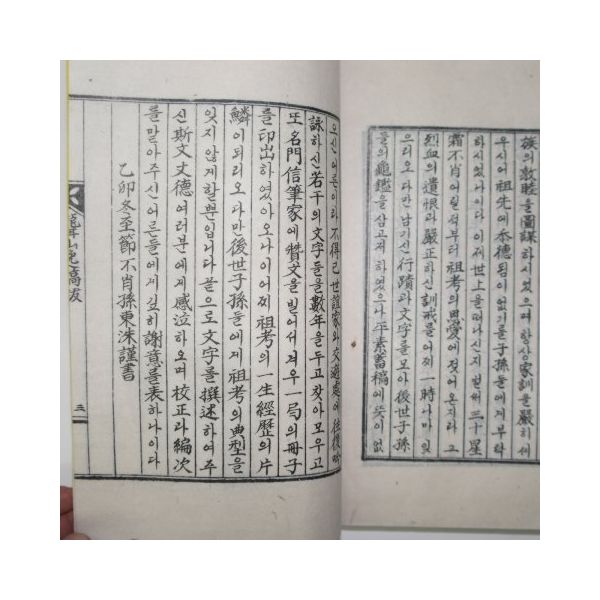 族의 敦睦을 圖謀하시었으며 항상 家訓을 嚴히 세
우시어 祖先에 忝德됨이 없기를 子孫들에게 부탁
하시었나이다 이제 世上을 떠나신지 벌써 三十星
霜不肖 어릴적부터 祖考의 恩愛에 젖어 온지라 그
烈血의 遺恨과 嚴正하신 訓戒를 어찌 一時나마 잊
으리오 다만 남기신 行蹟과 文字를 모아 後世子孫
들의 龜鑑을 삼고저 하였으나 平素蓄稿에 뜻이 없
으신 어른이라 不得已 世誼家와 交遊處에 往復吟
詠하신 若干의 文字들을 數年을 두고 찾아 모우고
또 名門信筆家에 贊文을 빌어서 겨우 一局의 冊子
를 印出하였아오나 이 어찌 祖考의 一生經歷의 片
鱗이 되리오 다만 後世子孫들에게 祖考의 典型을
잊지 않게 할 뿐입니다 끝으로 文字를 撰述하여 주
신 斯文丈德 여러부에게 感泣하오며 校正과 編次
를 말아주신 어른들에게 깊히 謝意를 表하나이다
乙卯冬至節 不肖孫 東洙 謹書
三